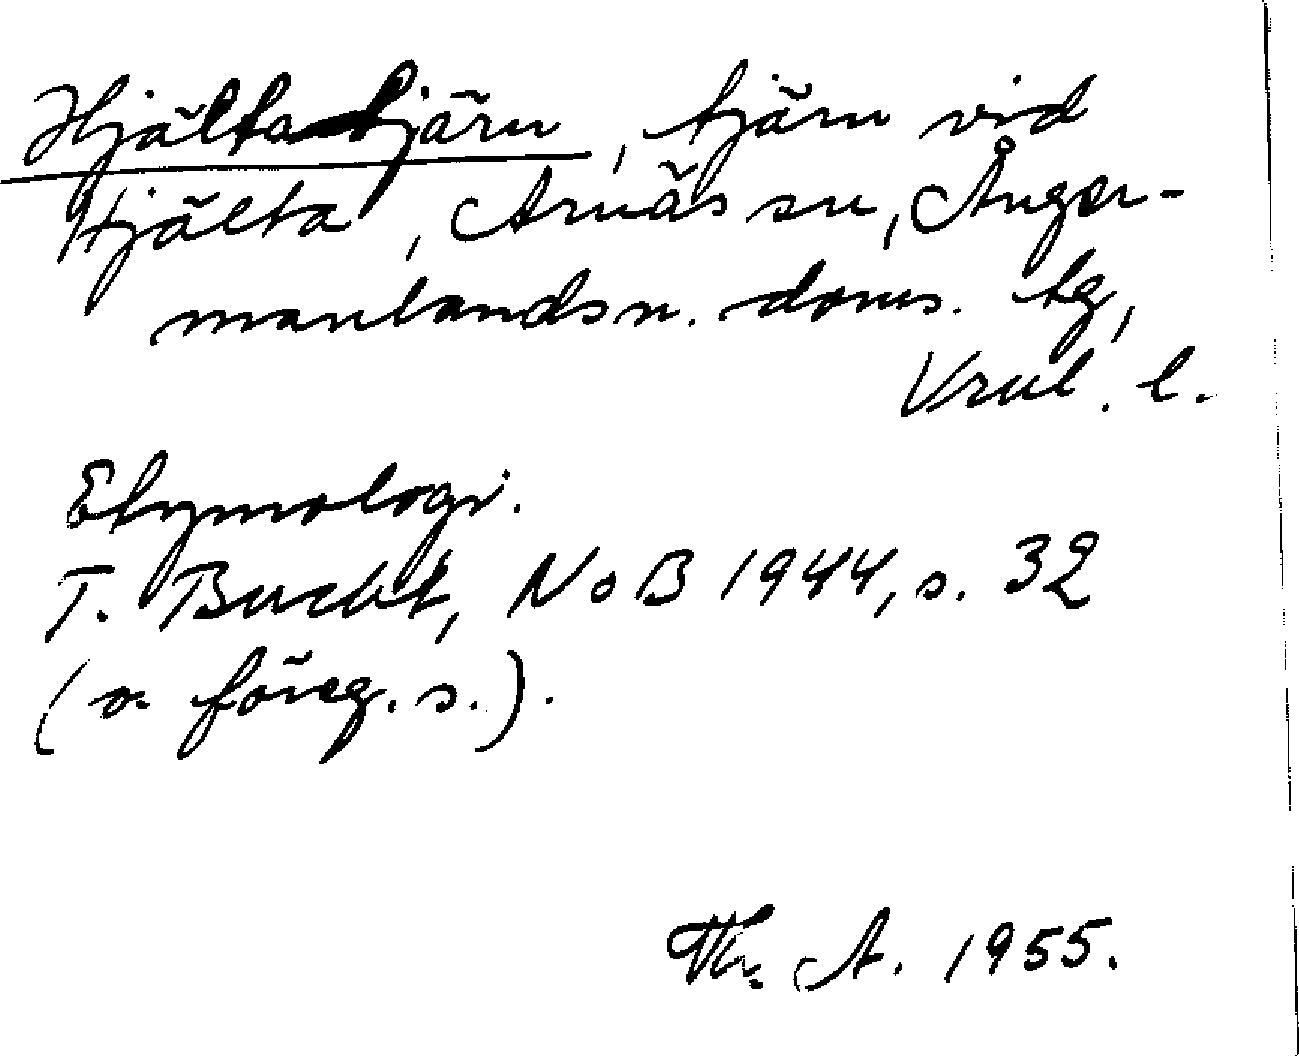 Hjältatjärn, tjärn vid
Hjälta, Arnäs sn, Ånger-
manlands n. doms. tg,
Vrnl. l.
Etymologi.
T. Bucht, NoB 1944, s. 32
(o. föreg. s.).
Th. A. 1955.